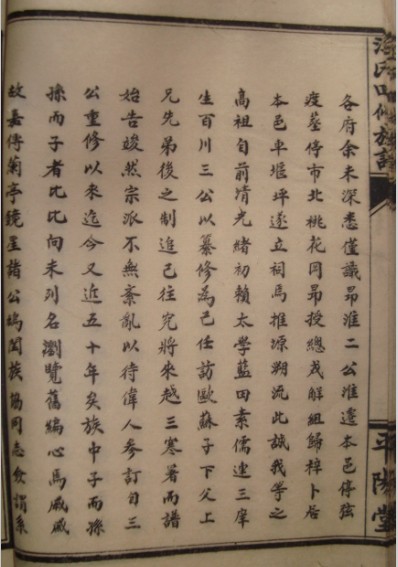 氏四修族譜
平陽堂
各府余未深悉僅識昂淮二公淮遷本邑停弦
疫墓停市北桃花岡昂授總戎解組歸棹卜居
本邑平堰坪遂立祠焉推源溯流此誠我等之
高祖自前清光緒初賴太學藍田素儒連三庠
生百川三公以纂修為己任訪歐蘇子下父上
兄先弟後之制追已往究將來越三寒暑而譜
始告竣然宗派不無紊亂以待偉人參訂自三
公重修以來迄今又近五十年矣族中子而孫
孫而子者比比向未列名瀏覽舊編心焉戚戚
故嘉傳蘭亭鏡星諸公鳩闔族協同志僉捐系